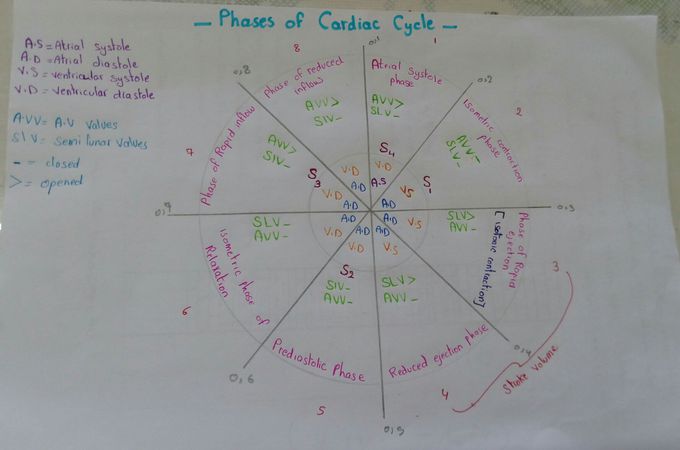 – Phases of Cardiac Cycle –
A.S = Atrial systole
A.D = Atrial diastole
V.S = ventricular systole
V.D = ventricular diastole
A.VV = A.V valves
SLV = Semi lunar valves
– = closed
> = opened
0,1
1
Atrial systole
phase
AVV>
SLV–
S4
V.D
A.S
0,2
2
Isometric contraction
phase
AVV–
SLV–
S1
V.S
A.D
0,3
3
Phase of Rapid
ejection
[isotonic contraction]
SLV>
AVV–
V.S
A.D
0,4
Stroke volume
4
Reduced ejection phase
SLV>
AVV–
V.S
A.D
0,5
5
Prediastolic Phase
S2
SLV–
AVV–
V.D
A.D
0,6
6
Isometric phase of
Relaxation
SLV–
AVV–
V.D
A.D
0,7
7
Phase of Rapid inflow
AVV>
SLV–
S3
V.D
A.D
0,8
8
Phase of reduced
inflow
AVV>
SLV–
V.D
A.D